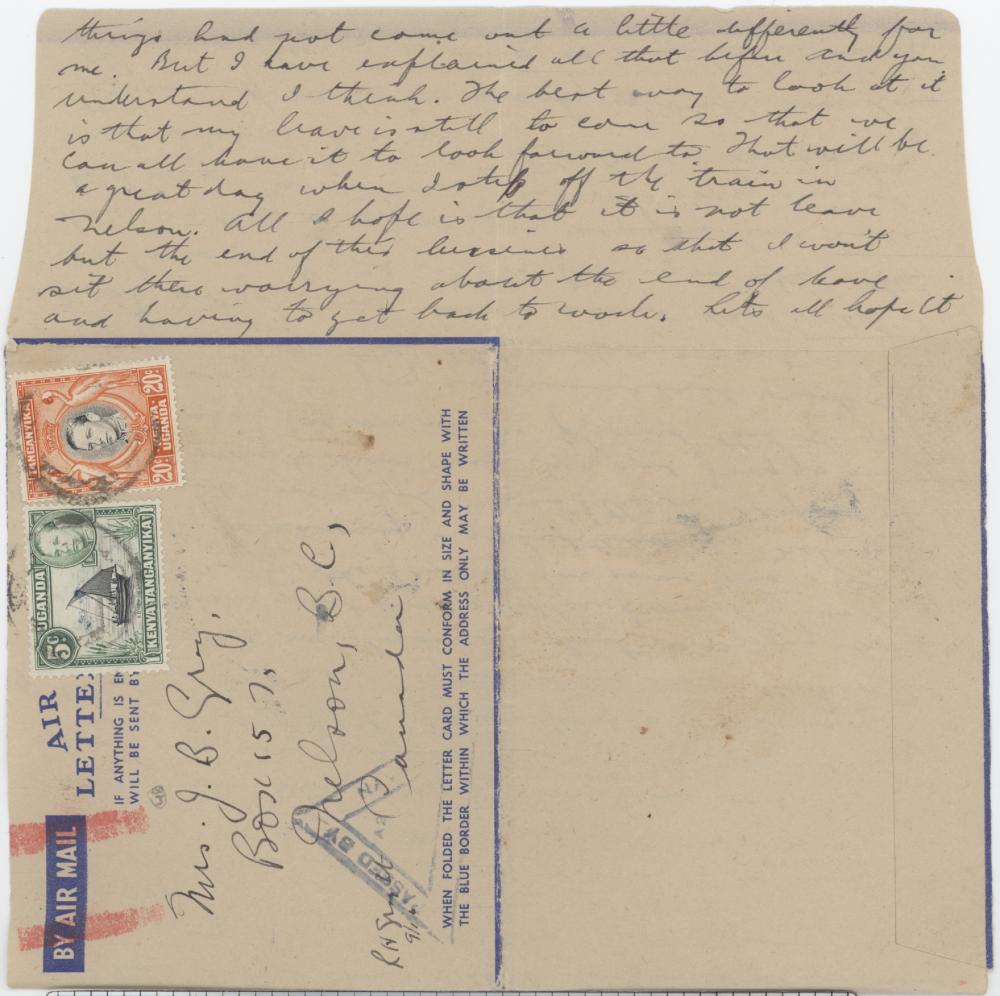 things had not come out a little differently for
me. But I have explained all that before and you
understand I think. The best way to look at it
is that my leave is still to come so that we
can all have it to look forward to. That will be
a great day when I step off the train in
Nelson. All I hope is that it is not leave
but the end of this business so that I won't
sit there worrying about the end of leave
and having to get back to work. Let's all hope it
TANGANYIKA
KENYA
UGANDA
20c
20c
UGANDA
KENYA TANGANYIKA
5c
AIR
LETTE
IF ANYTHING IS EN
WILL BE SENT BY
BY AIR MAIL
Mrs. J. B. Gray,
Box 157,
Nelson, B.C.,
Canada.
PASSED BY
WHEN FOLDED THE LETTER CARD MUST CONFORM IN SIZE AND SHAPE WITH
THE BLUE BORDER WITHIN WHICH THE ADDRESS ONLY MAY BE WRITTEN